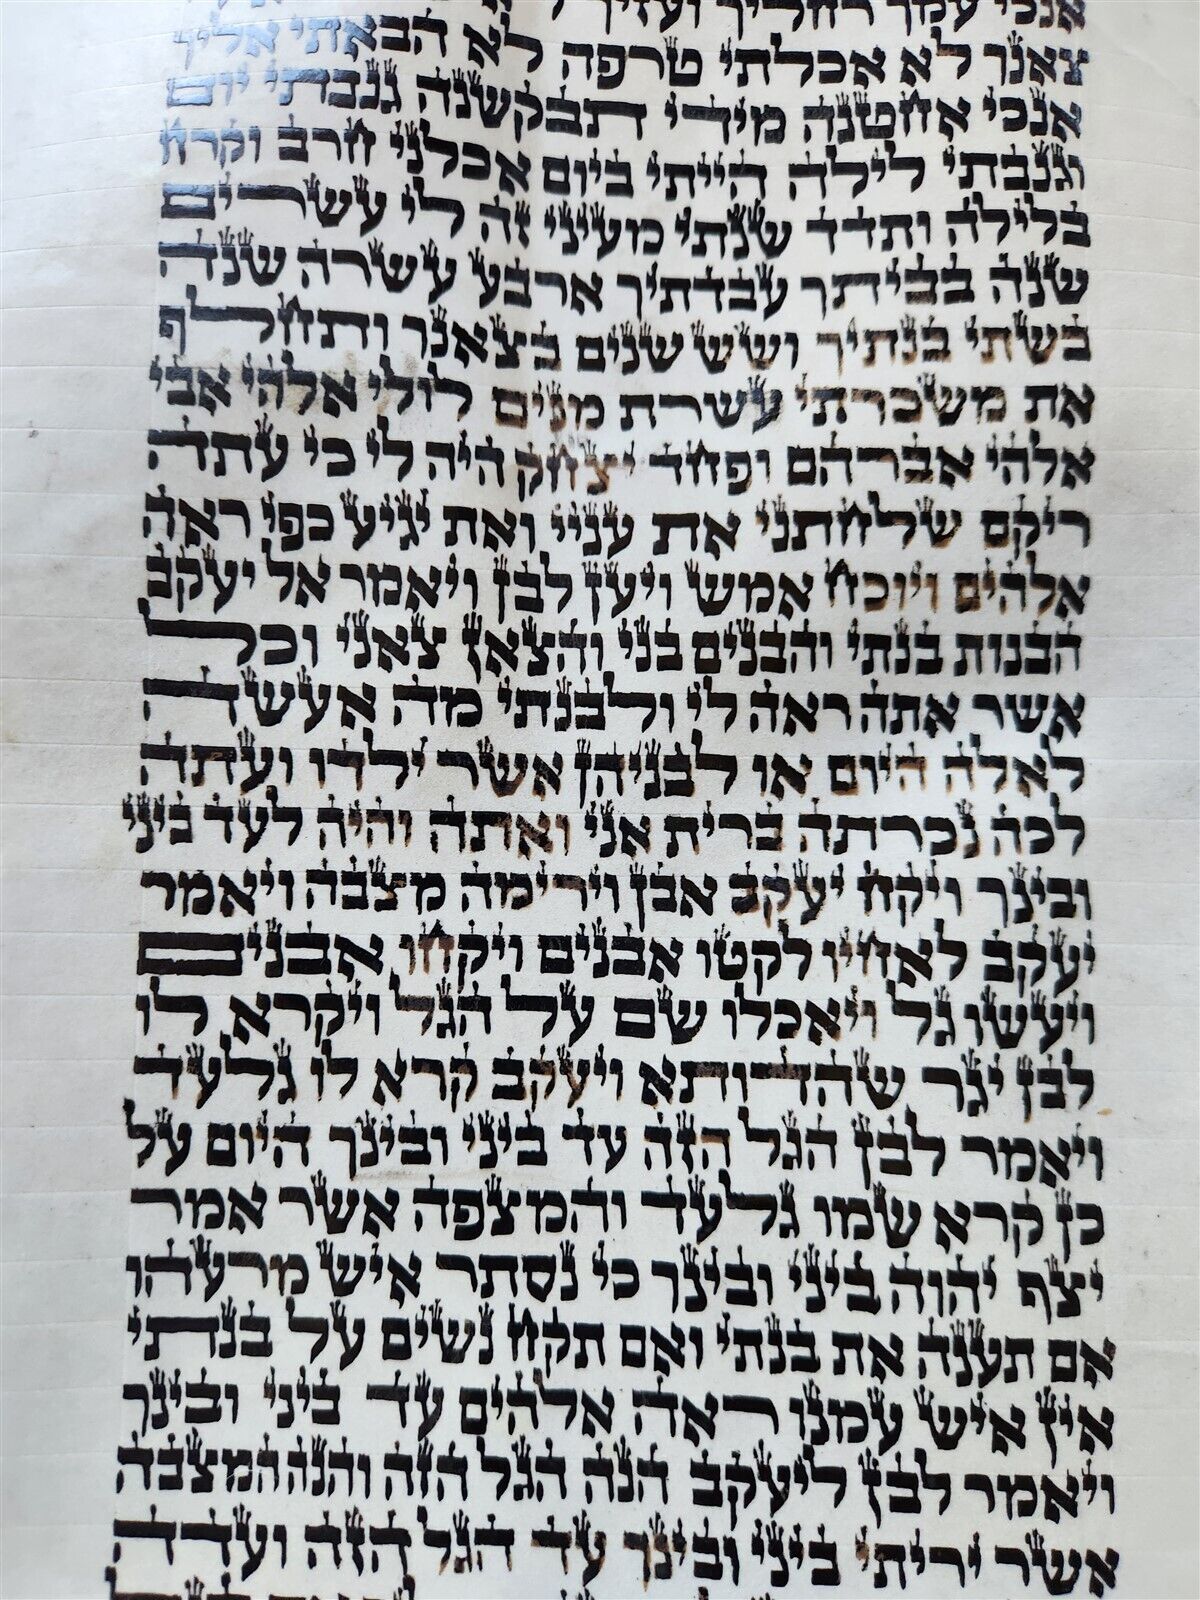 אנכי עמך רחליך ועזיך
צאנך לא אכלתי טרפה לא הבאתי אליך
אנכי אחטנה מידי תבקשנה גנבתי יום
וגנבתי לילה הייתי ביום אכלני חרב וקרח
בלילה ותדד שנתי מעיני זה לי עשרים
שנה בביתך עבדתיך ארבע עשרה שנה
בשתי בנתיך ושש שנים בצאנך ותחלף
את משכרתי עשרת מנים לולי אלהי אבי
אלהי אברהם ופחד יצחק היה לי כי עתה
ריקם שלחתני את עניי ואת יגיע כפי ראה
אלהים ויוכח אמש ויען לבן ויאמר אל יעקב
הבנות בנתי והבנים בני והצאן צאני וכל
אשר אתה ראה לי ולבנתי מה אעשה
לאלה היום או לבניהן אשר ילדו ועתה
לכה נכרתה ברית אני ואתה והיה לעד ביני
ובינך ויקח יעקב אבן וירימה מצבה ויאמר
יעקב לאחיו לקטו אבנים ויקחו אבנים
ויעשו גל ויאכלו שם על הגל ויקרא לו
לבן יגר שהדותא ויעקב קרא לו גלעד
ויאמר לבן הגל הזה עד ביני ובינך היום על
כן קרא שמו גלעד והמצפה אשר אמר
יצף יהוה ביני ובינך כי נסתר איש מרעהו
אם תענה את בנתי ואם תקח נשים על בנתי
אין איש עמנו ראה אלהים עד ביני ובינך
ויאמר לבן ליעקב הנה הגל הזה והנה המצבה
אשר יריתי ביני ובינך עד הגל הזה ועדה